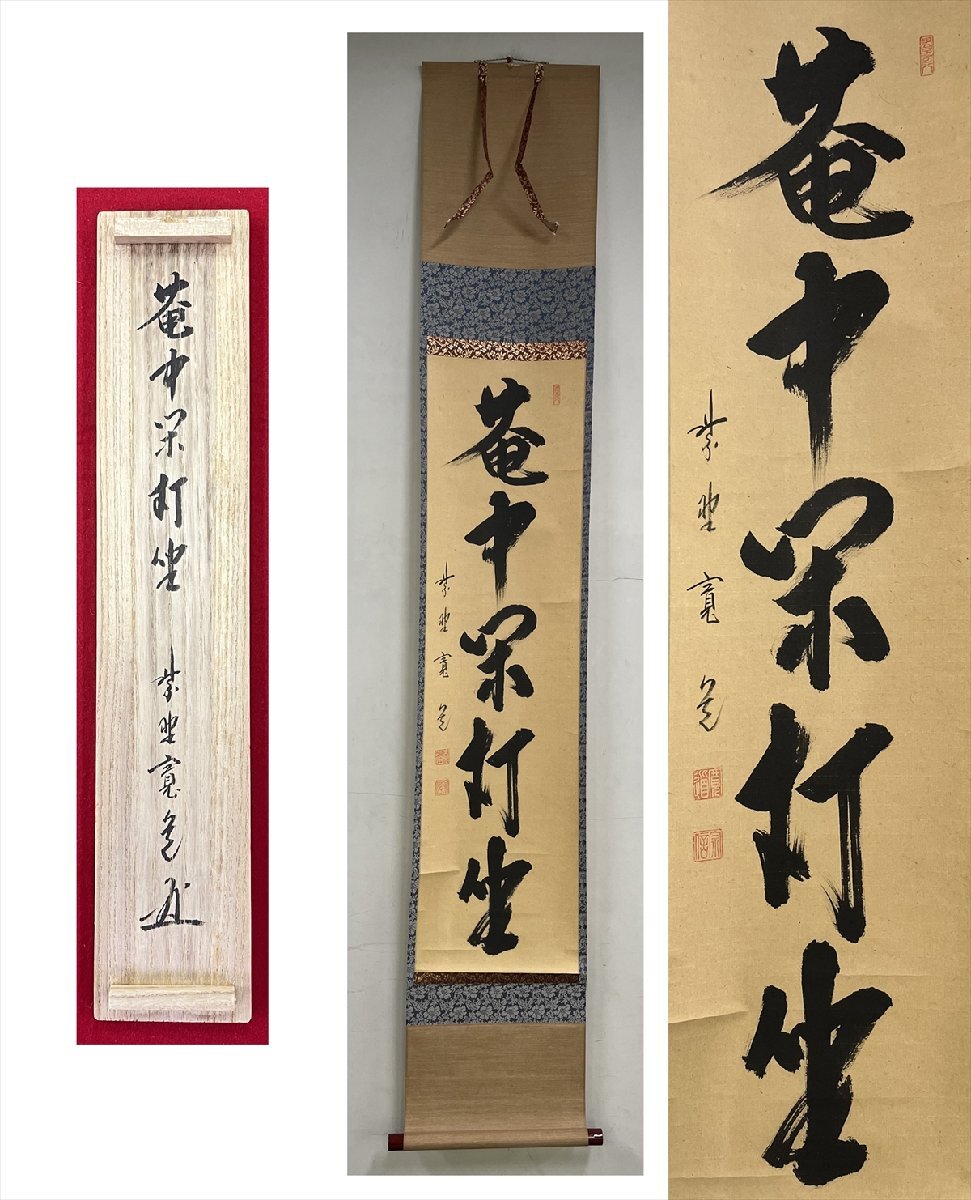 菴中閑打坐 紫埜寛道
菴中閑打坐
紫埜寛道
菴中閑打坐
紫埜寛道
寛道